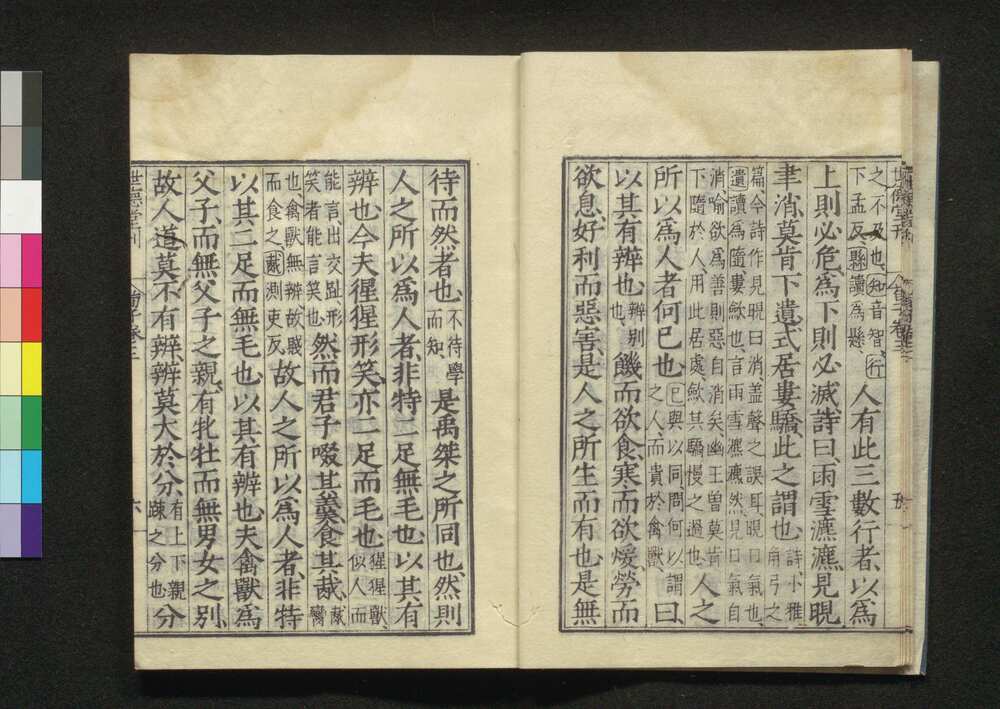 之不及也、知音智、行
下孟反、縣讀為懸、
人有此三數行者、以為
上則必危、為下則必滅、詩曰、雨雪瀌瀌、見晛
聿消、莫肯下遺、式居婁驕、此之謂也、
詩小雅、
角弓之
篇、今詩作見晛曰消蓋聲之誤耳、晛日氣也、
遺讀為隨、婁歛也、言雨雪瀌瀌然、見日氣自
消、喻欲為善則惡自消矣、幽王曾莫肯
下隨於人、用此居處歛其驕慢之過也、
人之
所以為人者何已也、
已與以同、問何以謂
之人而貴於禽獸、
曰、
以其有辨也、
辨別
也
饑而欲食、寒而欲煖、勞而
欲息、好利而惡害、是人之所生而有也、是無
待而然者也、
不待學
而知、
是禹桀之所同也、然則
人之所以為人者、非特二足無毛也、以其有
辨也、今夫猩猩形笑、亦二足而毛也、
猩猩獸、
似人而
能言出交趾、形
笑者能言笑也、
然而君子啜其羹食其胾、
胾
臠
也、禽獸無辨、故賤
而食之、胾測吏反、
故人之所以為人者、非特
以其二足而無毛也、以其有辨也、夫禽獸為
父子、而無父子之親、有牝牡而無男女之別、
故人道莫不有辨、辨莫大於分、
有上下親
踈之分也、
分
世德堂刊
六